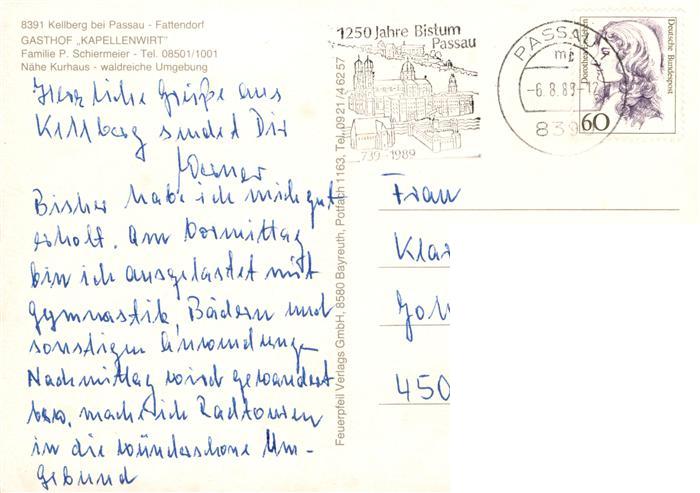 8391 Kellberg bei Passau - Fattendorf
GASTHOF „KAPELLENWIRT"
Familie P. Schiermeier - Tel. 08501/1001
Nähe Kurhaus - waldreiche Umgebung
Herzliche Grüße aus
Kellberg sendet Dir
Werner
Bisher habe ich mich gut
erholt. Am Vormittag
bin ich ausgelastet mit
Gymnastik, Bädern und
sonstigen Anwendungen
Nachmittag wird gewandert
bzw. mache ich Radtouren
in die wunderschöne Um-
gebund
Feuerpfeil Verlags GmbH, 8580 Bayreuth, Potfach 1163, Tel. 0921/46257
1250 Jahre Bistum
Passau
739-1989
PASSAU
mc
-6.8.89-12
839
Deutsche Bundespost
60
Frau
Kla
Joh
450